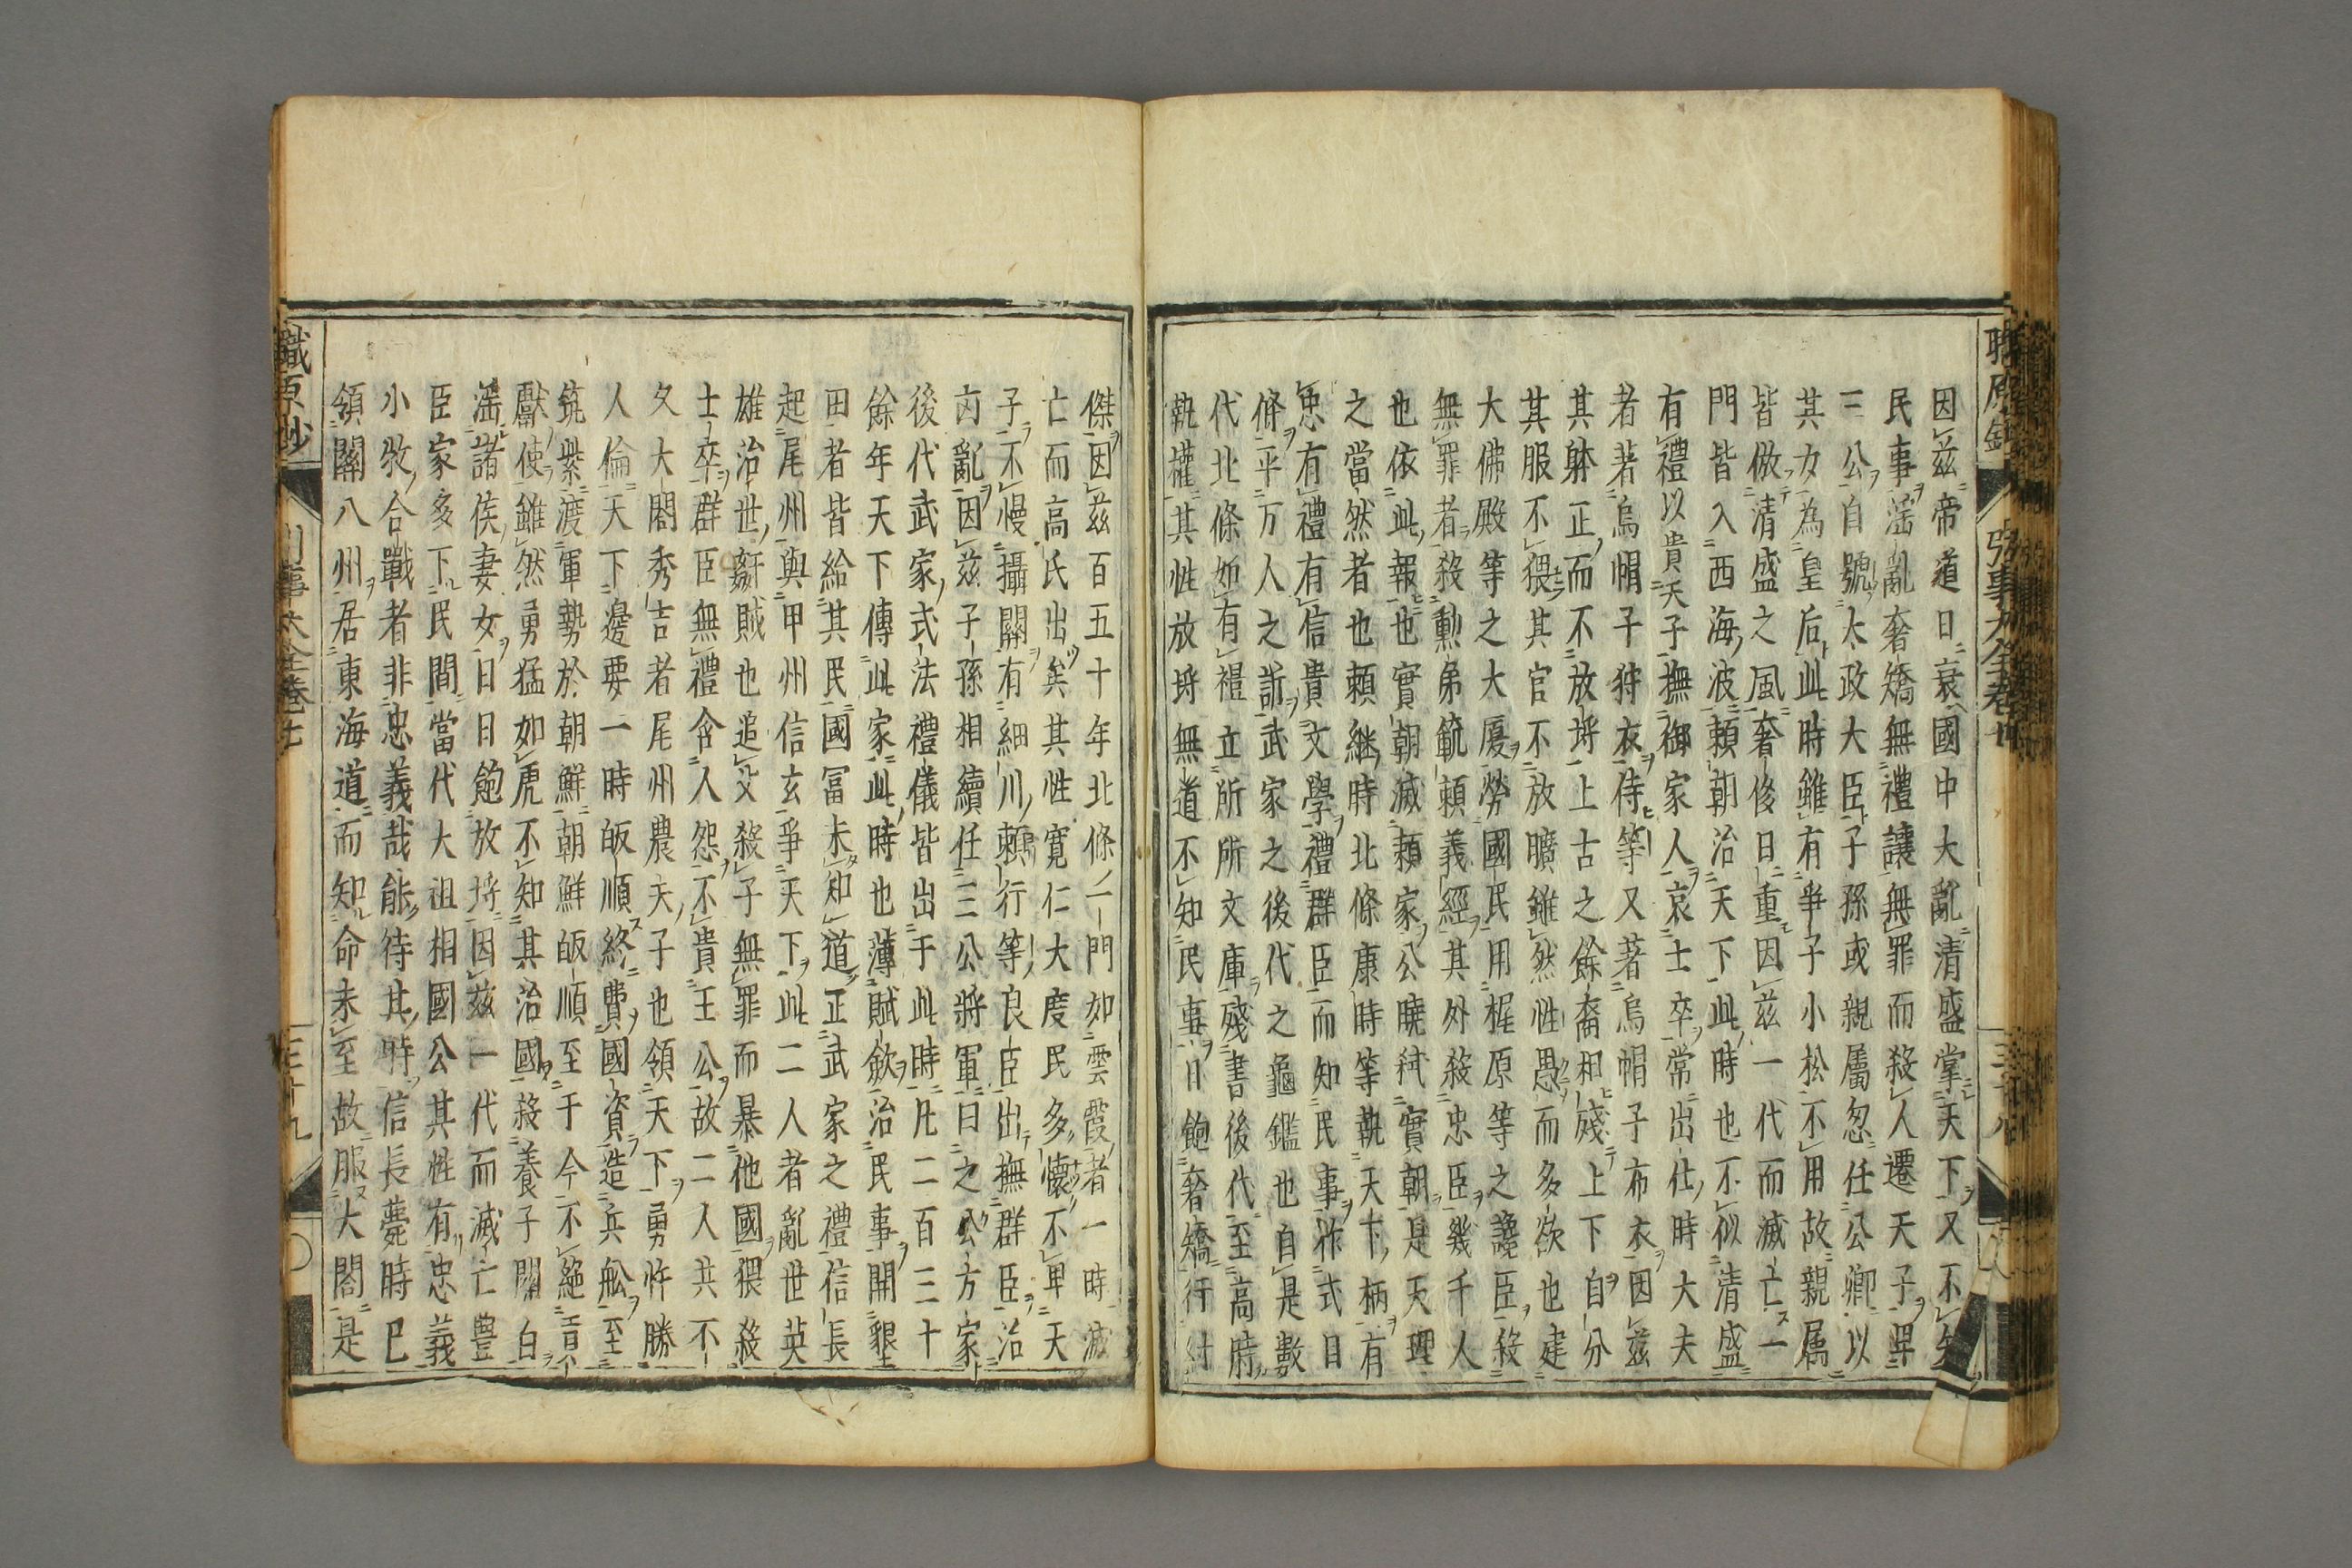 因茲帝道日衰國中大亂清盛掌天下又不
民事滛亂奢矯無禮讓無罪而殺人遷天子
三公自號太政大臣子孫或親屬忽任公卿以
其女為皇后此時雖有爭子小松不用故親属
皆倣清盛之風奢後日重因茲一代而滅亡一
門皆入西海波頼朝治天下此時也不似清盛
有禮以貴天子撫御家人哀士卒常出仕時大夫
者著烏帽子狩衣侍等又著烏帽子布衣因茲
其躰正而不放埓上古之餘裔相殘上下自分
其服不猥其官不放曠雖然性愚而多欲也建
大佛殿等之大厦勞國民用梶原等之讒臣殺
無罪者殺勲弟範頼義經其外殺忠臣幾千人
也依此報也實朝滅頼家公曉弑實朝是天理
之當然者也頼継時北條康時等執天下柄有
忠有禮有信貴文學禮群臣而知民事作式目
條平万人之訴武家之後代之龜鑑也自是數
代北條如有禮立所所文庫殘書後代至高時
執權其性放埓無道不知民事日飽奢矯行
傑因茲百五十年北條ノ一門如雲霞者一時滅
亡而高氏出矣其性寛仁大度民多懷不卑天
子不慢攝關有細川頼行等良臣出撫群臣治
内亂因茲子孫相續任三公將軍曰之公方家
後代武家式法禮儀皆出于此時凡二百三十
餘年天下傳此家此時也薄賦歛治民事開墾
田者皆給其民國冨未知道正武家之禮信長
起尾州與甲州信玄爭天下此二人者亂世英
雄治世奸賊也追父殺子無罪而暴他國猥殺
士卒群臣無禮含人怨不貴王公故二人共不
久大閤秀吉者尾州農夫子也領天下勇忤勝
人倫天下邊要一時皈順終費國資造兵舩至
筑紫渡軍勢於朝鮮朝鮮皈順至于今不絶
獻使雖然勇猛如虎不知其治國殺養子關白
滛諸侯妻女日日飽放埓因茲一代而滅亡豊
臣家多下民間當代大祖相國公其性有忠義
小牧合戰者非忠義哉能待其時信長薨時已
領關八州居東海道而知命未至故服大閤是
職原抄